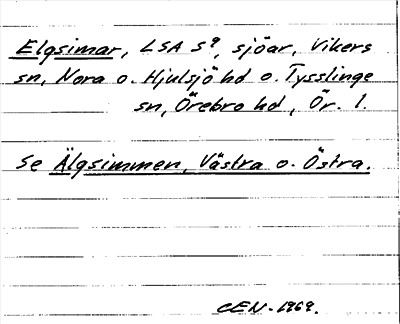 Elgsimar, LSA S9, sjöar, Vikers
sn, Nora o. Hjulsjö hd o. Tysslinge
sn, Örebro hd, Ör. l.
Se Älgsimmen, Västra o. Östra.
CEN-1969.